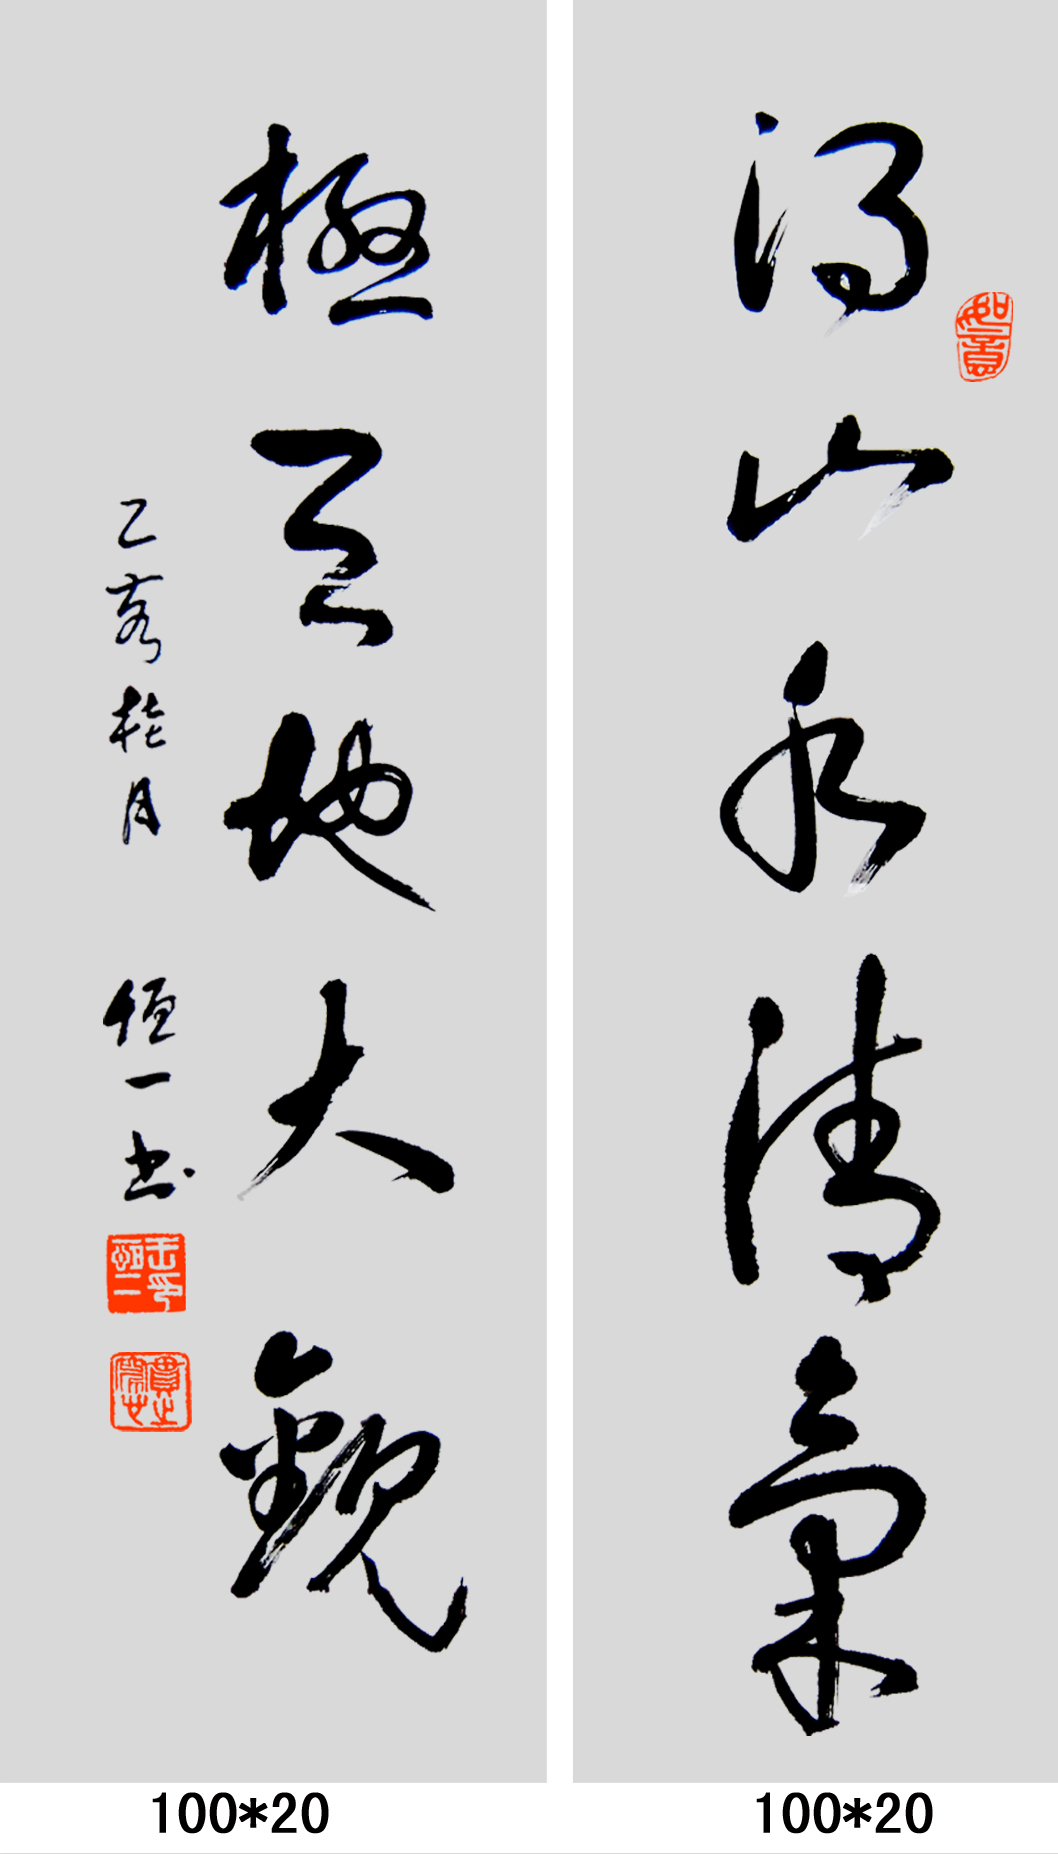 得山水清氣
如意
極天地大觀
乙亥桂月 恒一书
100*20
100*20